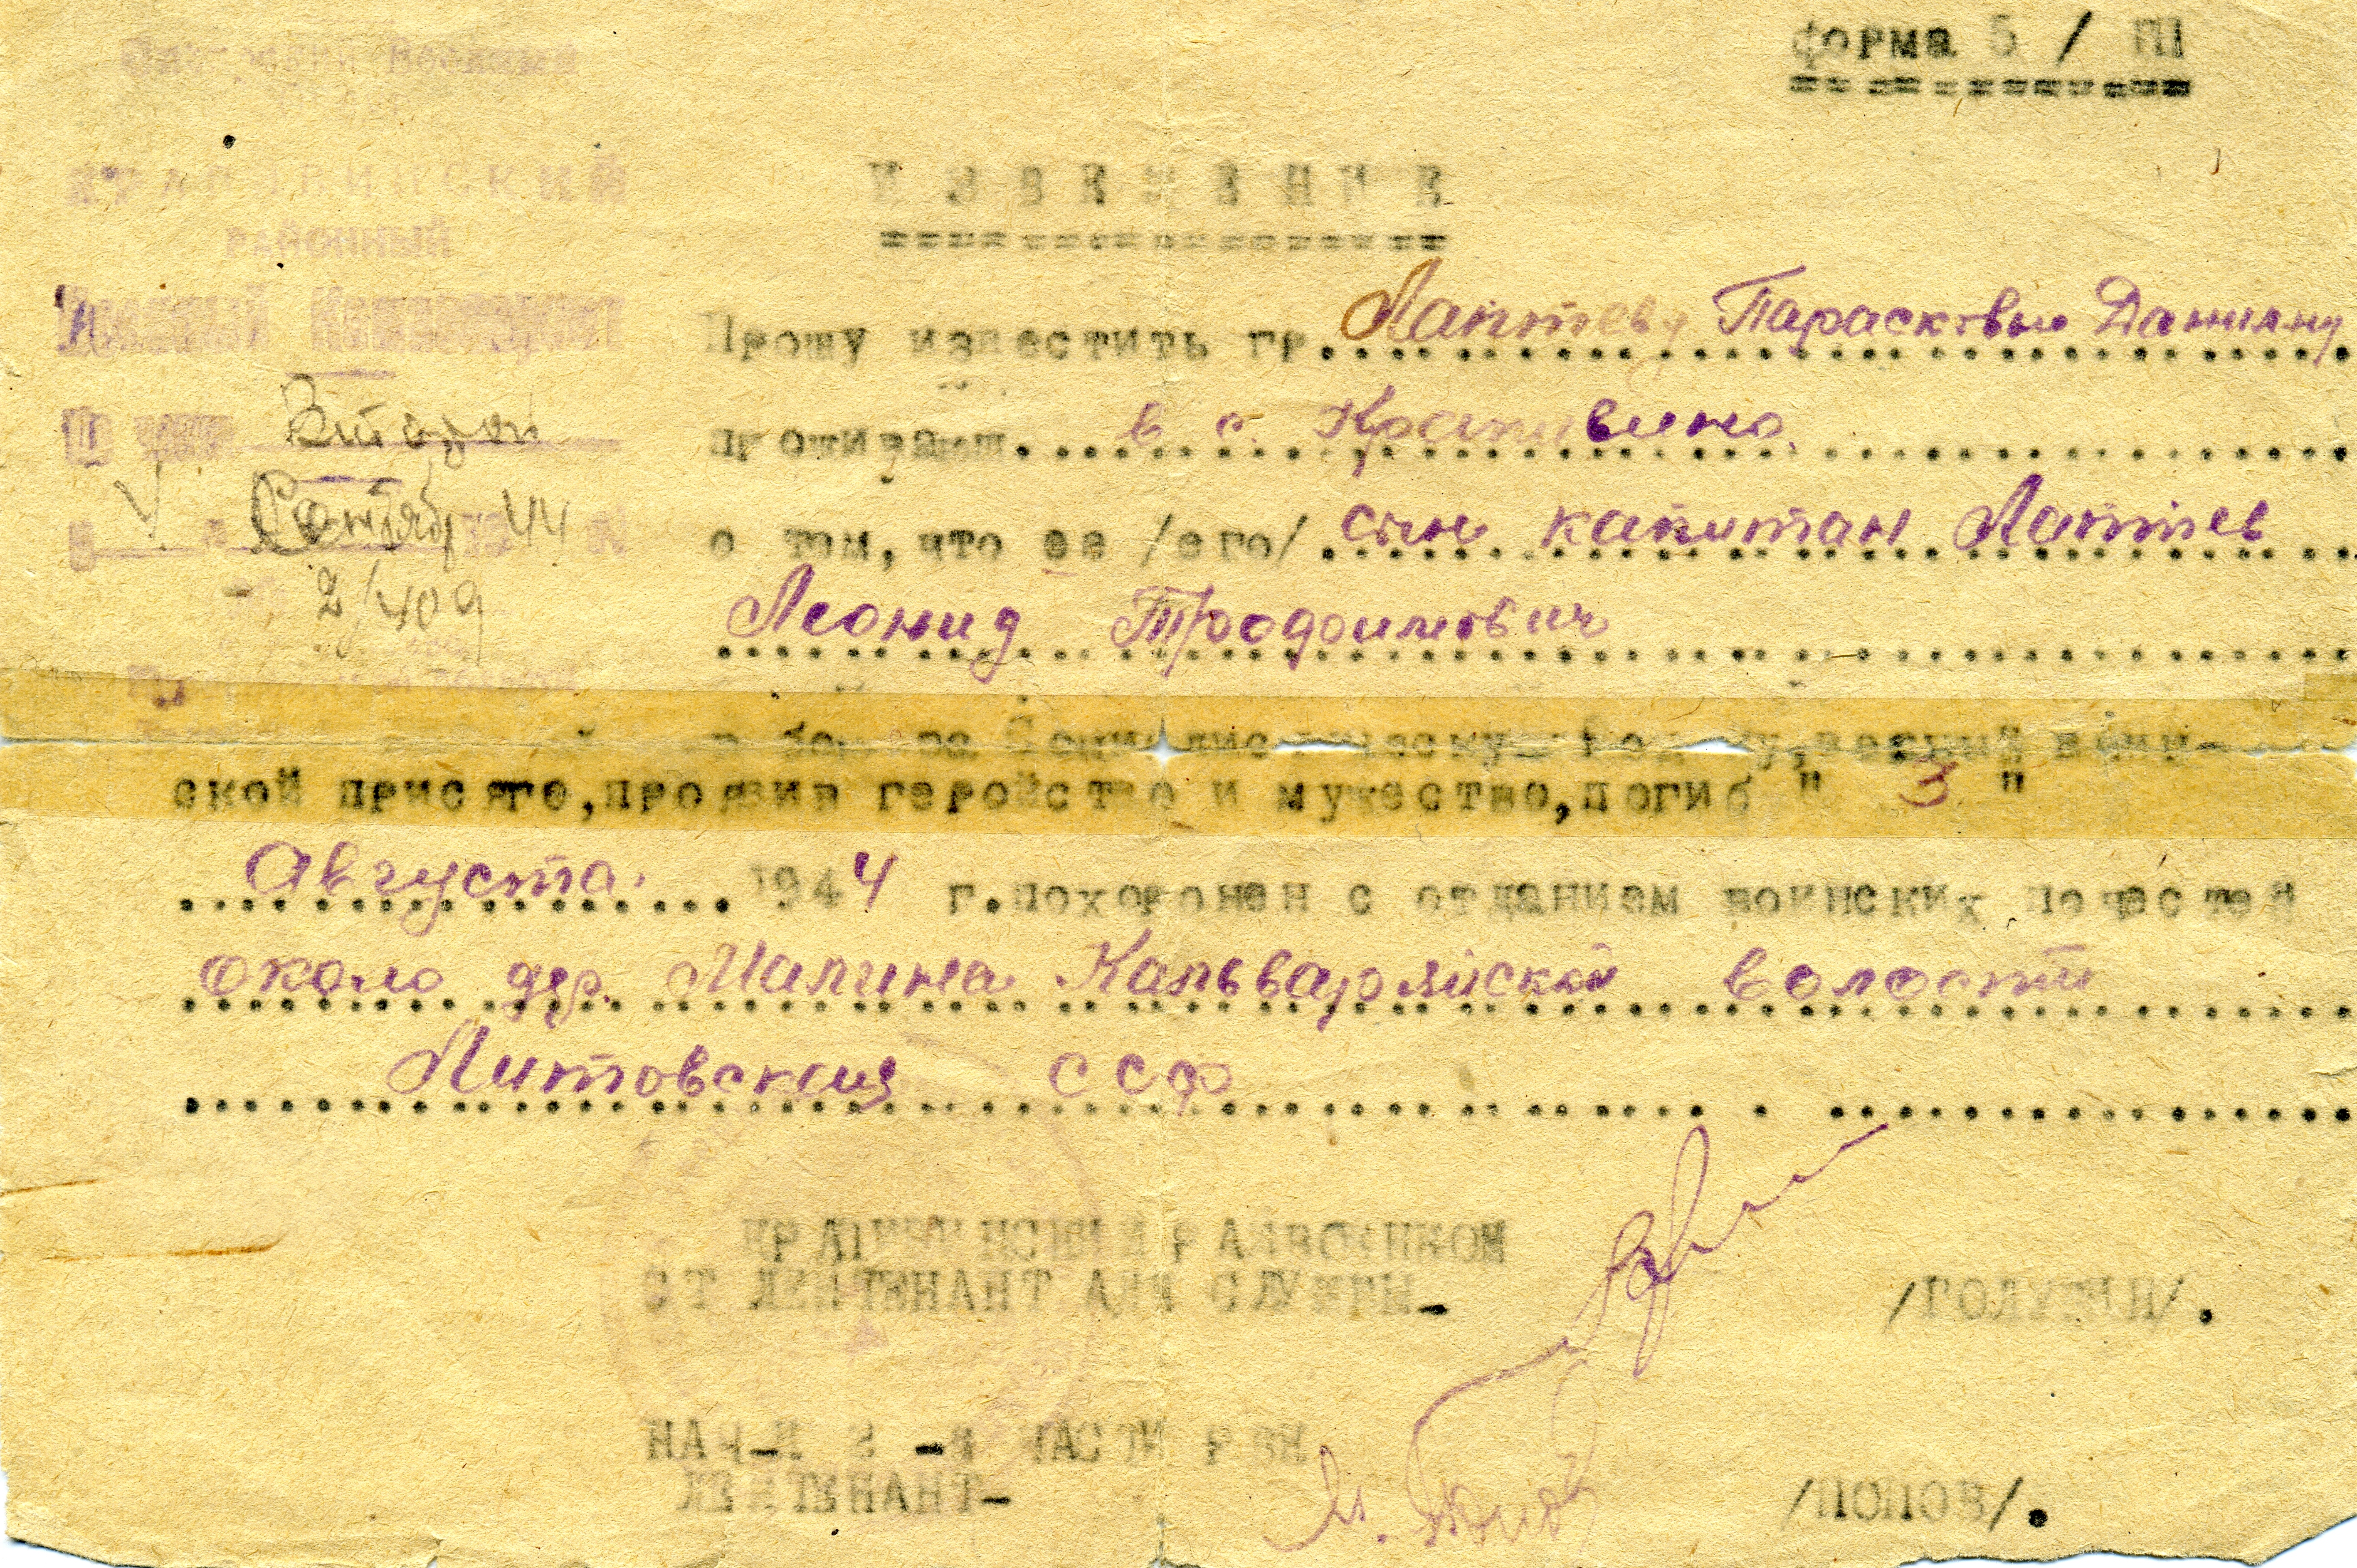 форма 5 / ПI
РАЙОННЫЙ
Военный Комиссариат
Второй
Сентябр 44
2/409
ИЗВЕЩЕНИЕ
Прошу известить гр. Лаптеву Парасковью Данилну
проживающ. в с. Крапивино.
о том, что ее /его/ сын капитан Лаптев
Леонид Трофимович
Социалистическую Родину, верный воин-
ской присяге, проявив геройство и мужество, погиб " 3 "
Августа. 1944 г. похоронен с отданием воинских почестей
около дер. Малина Кальварийской волости
Литовская ССР
КРАПИВИНСКИЙ РАЙВОЕНКОМ
СТ ЛЕЙТЕНАНТ АДМ СЛУЖБЫ-
/ГОЛУБИН/.
НАЧ-К 2-Й ЧАСТИ РВК
ЛЕЙТЕНАНТ-
/ПОПОВ/.